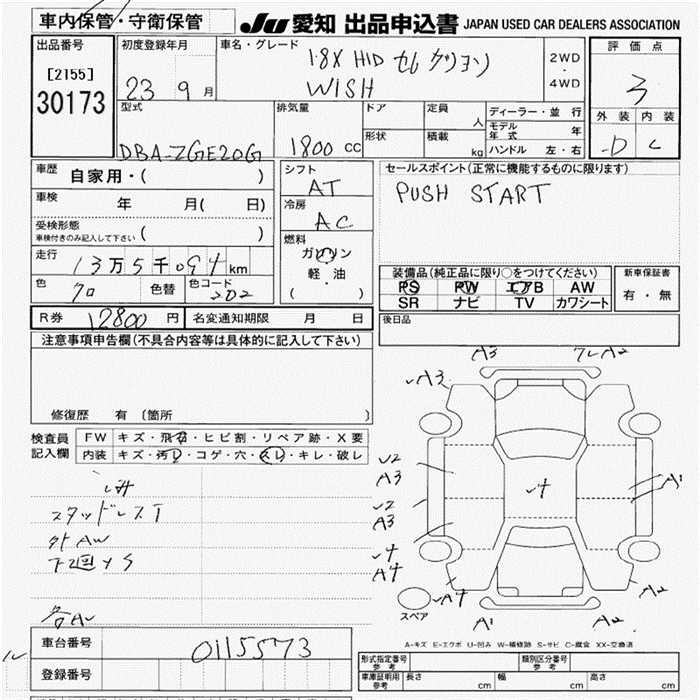 車内保管・守衛保管
JU 愛知 出品申込書 JAPAN USED CAR DEALERS ASSOCIATION
出品番号
[2155]
30173
初度登録年月
23 9 月
車名・グレード
1.8X HID セレクション
WISH
2WD
・
4WD
評価点
3
外装 内装
D C
型式
DBA-ZGE20G
排気量
1800 CC
ドア
定員
人
形状
積載
kg
ディーラー・並行
モデル年式 年
ハンドル 左・右
車歴
自家用・( )
車検
年 月( 日)
受検形態
車検付きのみ記入して下さい ( )
走行
13万5千094km
色
クロ
色替
色コード
202
シフト
AT
冷房
AC
燃料
ガソリン
軽・油
( )
セールスポイント(正常に機能するものに限ります)
PUSH START
装備品(純正品に限り○をつけてください)
PS PW エアB AW
SR ナビ TV カワシート
新車保証書
有・無
R券 12800 円
名変通知期限 月 日
後日品
注意事項申告欄(不具合内容等は具体的に記入して下さい)
修復歴 有 〔箇所 〕
検査員
記入欄
FW キズ・飛石・ヒビ割・リペア跡・X要
内装 キズ・汚レ・コゲ・穴・スレ・キレ・破レ
スタッドレスT
外AW
下回サS
各AU
A3
フレA2
A3
√2
A3
√2
A3
√4
A4
√4
A1
A4
A2
スペア
A1
A2
A-キズ E-エクボ U-凹み W-補修跡 S-サビ C-腐食 XX-交換済
車台番号
0115573
登録番号
形式指定番号
参考
類別区分番号
参考
車庫証明用
参考
長さ cm
幅 cm
高さ cm